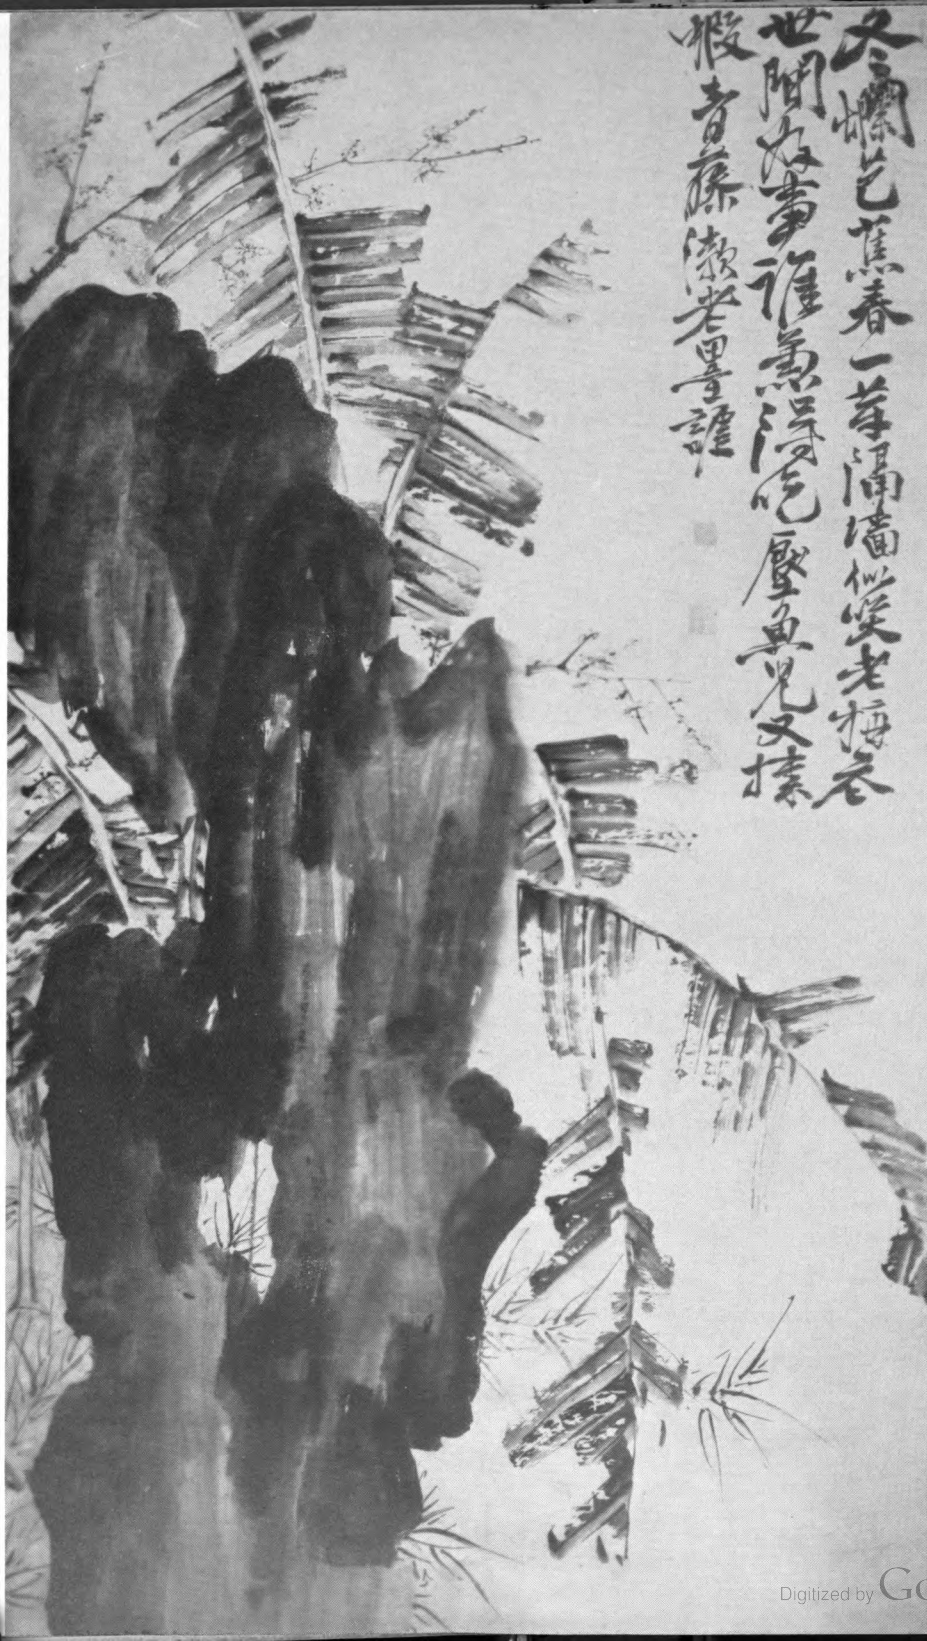 冬爛芭蕉春一芽隔墻似笑老梅花
世間好事誰兼得吃厭魚兒又揀
蝦青藤漱老墨謔
Digitized by Go